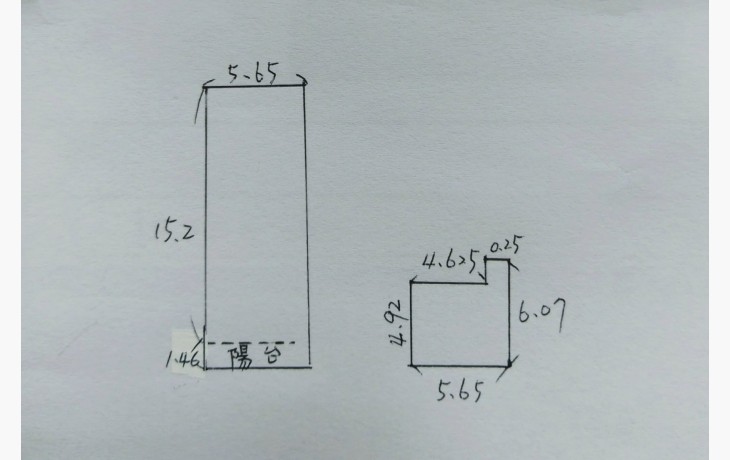 5.65
15.2
1.46
陽台
0.25
4.625
4.92
6.07
5.65